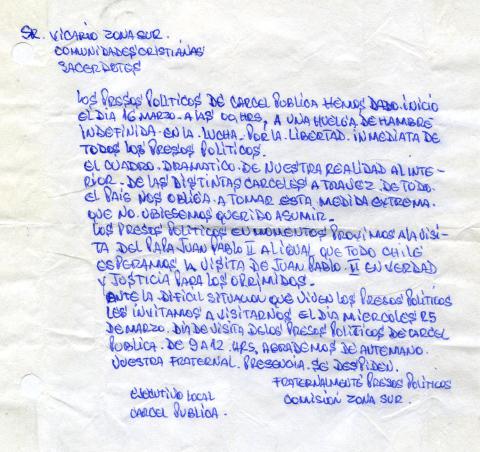 SR. VICARIO ZONA SUR.
COMUNIDADES CRISTIANAS
SACERDOTES
LOS PRESOS POLITICOS DE CARCEL PUBLICA HEMOS DADO INICIO
EL DIA 16 MARZO A LAS 00 HRS, A UNA HUELGA DE HAMBRE
INDEFINIDA EN LA LUCHA POR LA LIBERTAD INMEDIATA DE
TODOS LOS PRESOS POLITICOS.
EL CUADRO DRAMATICO DE NUESTRA REALIDAD AL INTE-
RIOR DE LAS DISTINTAS CARCELES A TRAVEZ DE TODO
EL PAIS NOS OBLIGA A TOMAR ESTA MEDIDA EXTREMA
QUE NO UBIESEMOS QUERIDO ASUMIR.-
LOS PRESOS POLITICOS EN MOMENTOS PROVIMOS A LA VISI-
TA DEL PAPA JUAN PABLO II AL IGUAL QUE TODO CHILE
ESPERAMOS LA VISITA DE JUAN PABLO II EN VERDAD
Y JUSTICIA PARA LOS OPRIMIDOS.-
ANTE LA DIFICIL SITUACION QUE VIVEN LOS PRESOS POLITICOS
LES INVITAMOS A VISITARNOS EL DIA MIERCOLES 25
DE MARZO. DIA DE VISITA DE LOS PRESOS POLITICOS DE CARCEL
PUBLICA. DE 9 A 12 HRS, AGRADEMOS DE ANTEMANO
VUESTRA FRATERNAL PRESENCIA. SE DESPIDEN.
FRATERNALMENTE PRESOS POLITICOS
EJECUTIVO LOCAL COMISION ZONA SUR.
CARCEL PUBLICA.